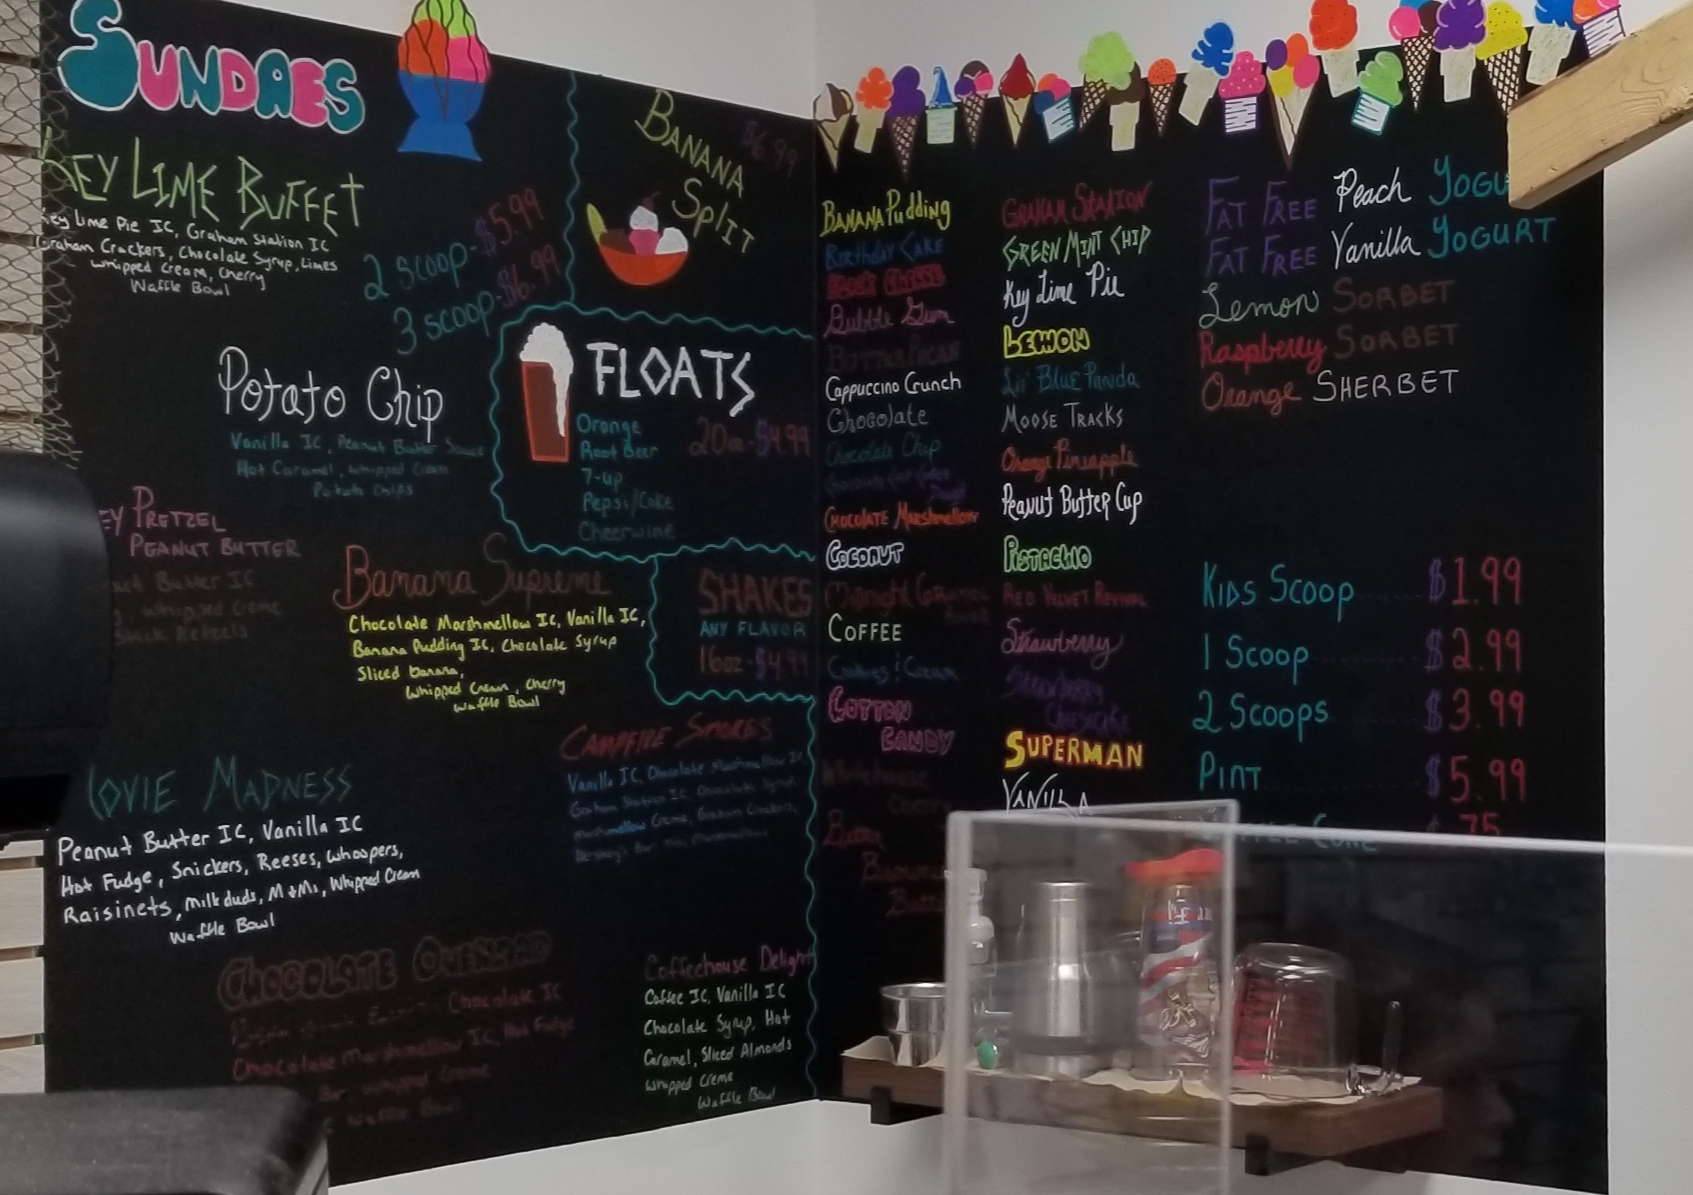 SUNDAES
KEY LIME BUFFET
Key Lime Pie IC, Graham Station IC
Graham Crackers, Chocolate Syrup, Limes
Whipped Cream, Cherry
Waffle Bowl
2 scoop - $5.99
3 scoop - $6.99
BANANA $6.99
SPLIT
Potato Chip
Vanilla IC, Peanut Butter Sauce
Hot Caramel, Whipped Cream
Potato Chips
FLOATS
Orange
Root Beer
7-up
Pepsi/Coke
Cheerwine
20oz - $4.99
EY PRETZEL
PEANUT BUTTER
Butter IC
Whipped Creme
Banana Supreme
Chocolate Marshmellow IC, Vanilla IC,
Banana Pudding IC, Chocolate Syrup
Sliced banana,
Whipped Cream, Cherry
Waffle Bowl
SHAKES
ANY FLAVOR
16oz - $4.99
MOVIE MADNESS
Peanut Butter IC, Vanilla IC
Hot Fudge, Snickers, Reeses, Whoppers,
Raisinets, Milk duds, M+Ms, Whipped Cream
Waffle Bowl
CAMPFIRE SMORES
Vanilla IC, Chocolate Marshmallow IC
Graham Station IC, Chocolate Syrup
Marshmellow Creme, Graham Crackers,
Hershey's Bar, mini Marshmallows
CHOCOLATE OVERLOAD
Chocolate IC
Chocolate Marshmellow IC, Hot Fudge
Bar, Whipped Creme
Waffle Bowl
Coffeehouse Delight
Coffee IC, Vanilla IC
Chocolate Syrup, Hot
Caramel, Sliced Almonds
Whipped Creme
Waffle Bowl
BANANA Pudding
Birthday CAKE
Bubble Gum
BUTTER PECAN
Cappuccino Crunch
Chocolate
Chocolate Chip
CHOCOLATE Marshmellow
COCONUT
Midnight Caramel
COFFEE
Cookies & Cream
COTTON
CANDY
Whitehouse
Cherry
GRAHAM STATION
GREEN MINT CHIP
Key Lime Pie
LEMON
Lil' Blue Panda
MOOSE TRACKS
Orange Pineapple
PEANUT BUTTER CUP
PISTACHIO
RED VELVET REVIVAL
Strawberry
STRAWBERRY
CHEESECAKE
SUPERMAN
VANILLA
FAT FREE Peach YOGU
FAT FREE Vanilla YOGURT
Lemon SORBET
Raspberry SORBET
Orange SHERBET
KIDS SCOOP $1.99
1 SCOOP $2.99
2 SCOOPS $3.99
PINT $5.99
CONE .75